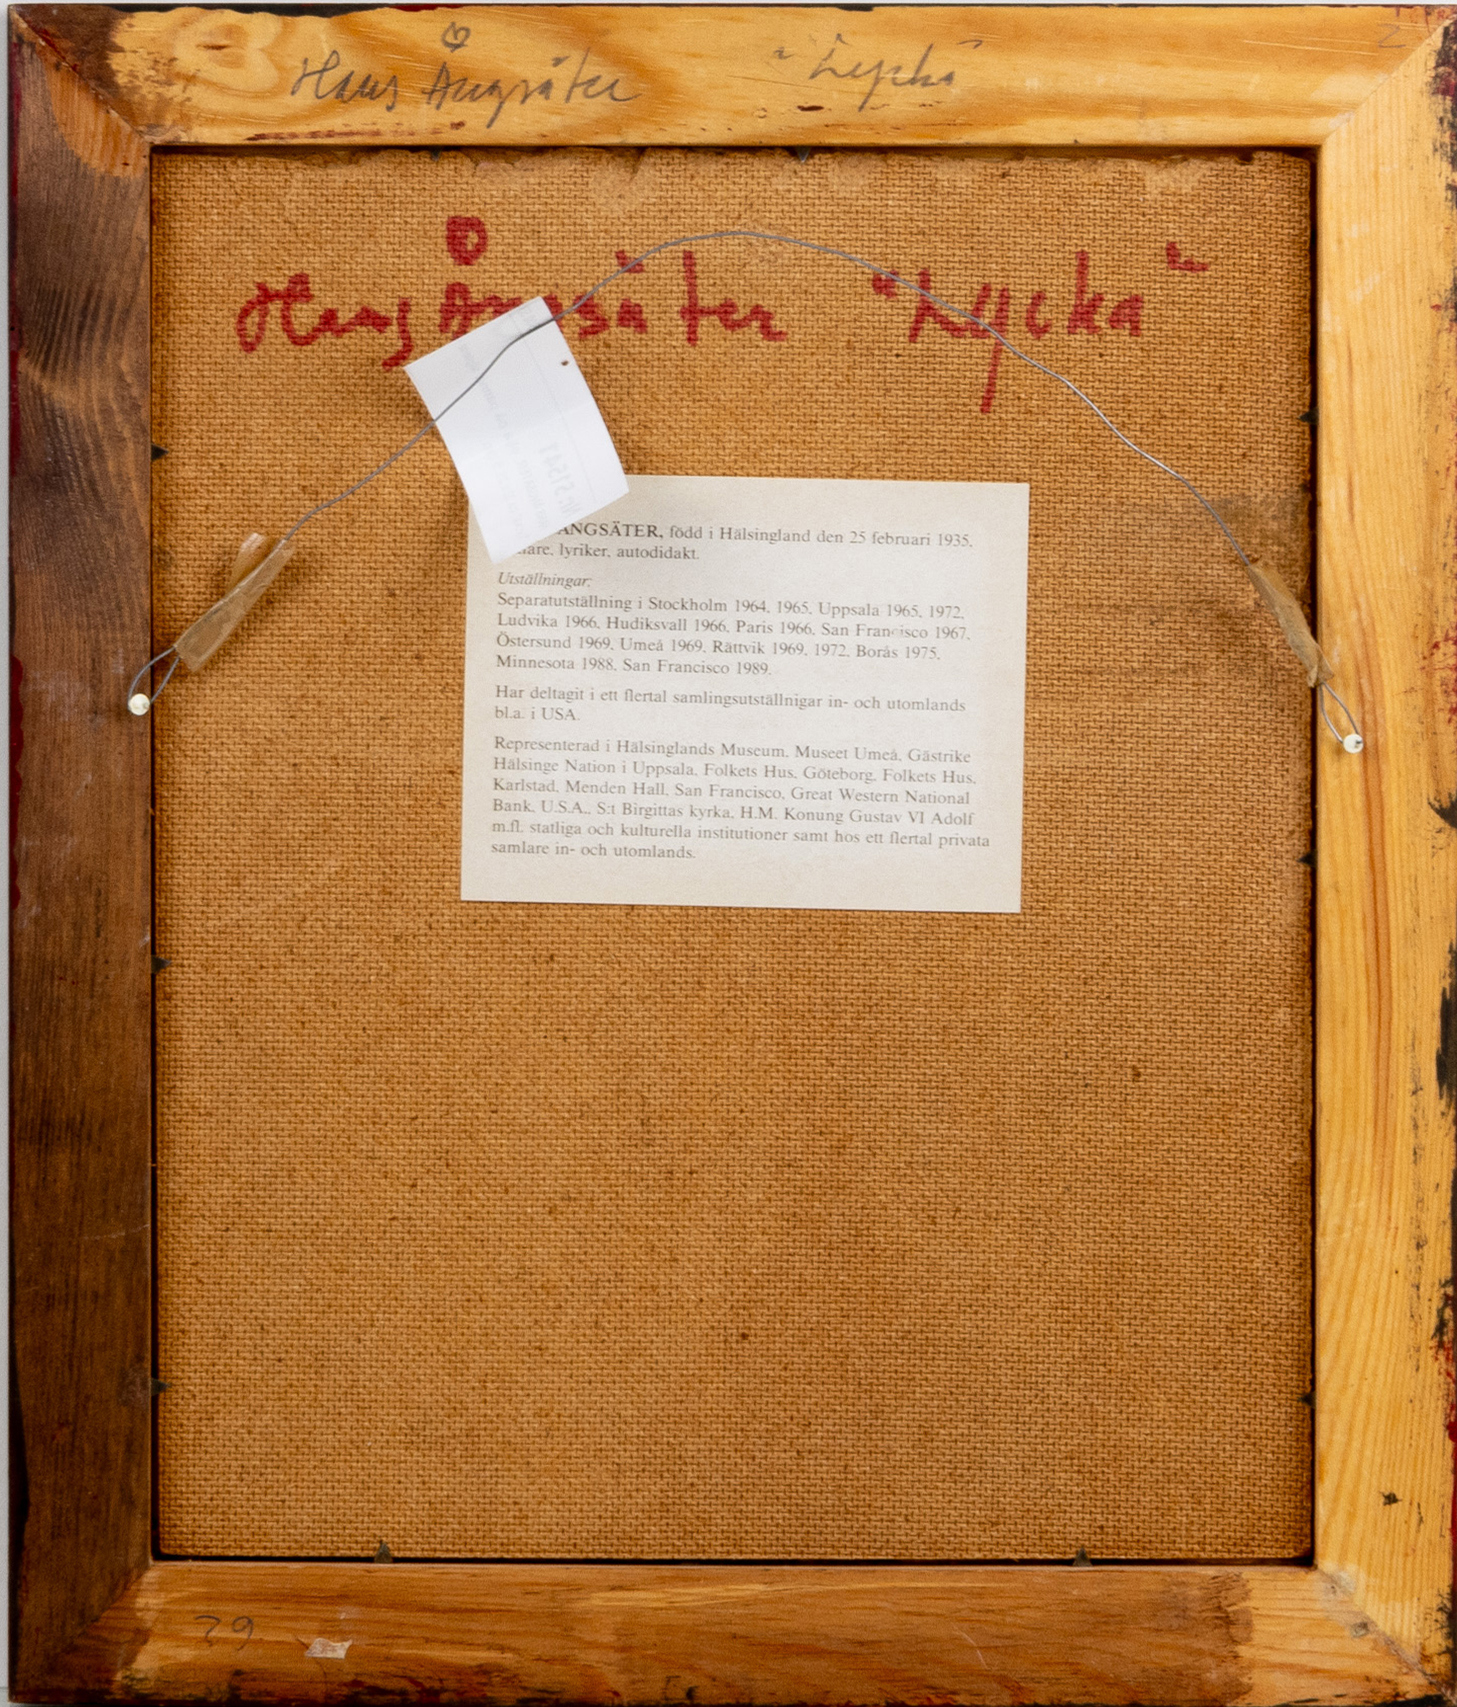 Hans Ångsäter "Lycka"
Hans Ångsäter "Lycka"
ANGSÄTER, född i Hälsingland den 25 februari 1935.
lyriker, autodidakt.
Utställningar:
Separatutställning i Stockholm 1964, 1965, Uppsala 1965, 1972,
Ludvika 1966, Hudiksvall 1966, Paris 1966, San Francisco 1967,
Östersund 1969, Umeå 1969, Rättvik 1969, 1972, Borås 1975,
Minnesota 1988, San Francisco 1989.
Har deltagit i ett flertal samlingsutställnigar in- och utomlands
bl.a. i USA.
Representerad i Hälsinglands Museum, Museet Umeå, Gästrike
Hälsinge Nation i Uppsala, Folkets Hus, Göteborg, Folkets Hus,
Karlstad, Menden Hall, San Francisco, Great Western National
Bank, U.S.A., S:t Birgittas kyrka, H.M. Konung Gustav VI Adolf
m.fl. statliga och kulturella institutioner samt hos ett flertal privata
samlare in- och utomlands.
29